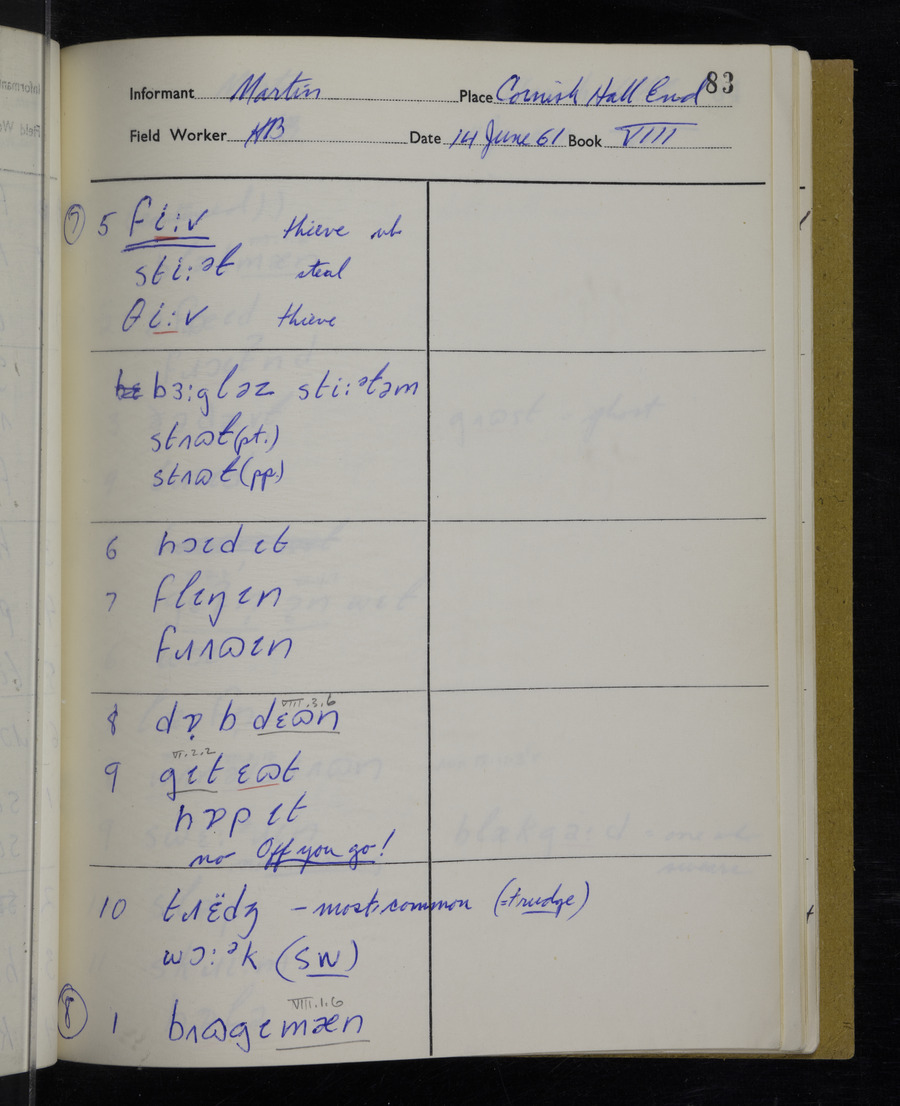 83
Informant Martin Place Cornish Hall End
Field Worker HB Date 14 June 61 Book VIII
⑦ 5 fi:v thieve vb
sti:əɫ steal
θi:v thieve
bɜ:gləz sti:əɫəm
stɹɷɫ (pt.)
stɹɷɫ (pp.)
6 hɔɪd ɪt
7 flɪŋɪn
fɹɹɷɪn
VIII.3.6
8 dɒ̣ b dɛɷn
VI.2.2
9 gɪt ɛɷt
hɒp ɪt
no Off you go!
10 tɹɛ̈dʒ – most common (=trudge)
wɔ:ək (SW)
VIII.1.6
⑧ 1 bɹɷgɪmæn